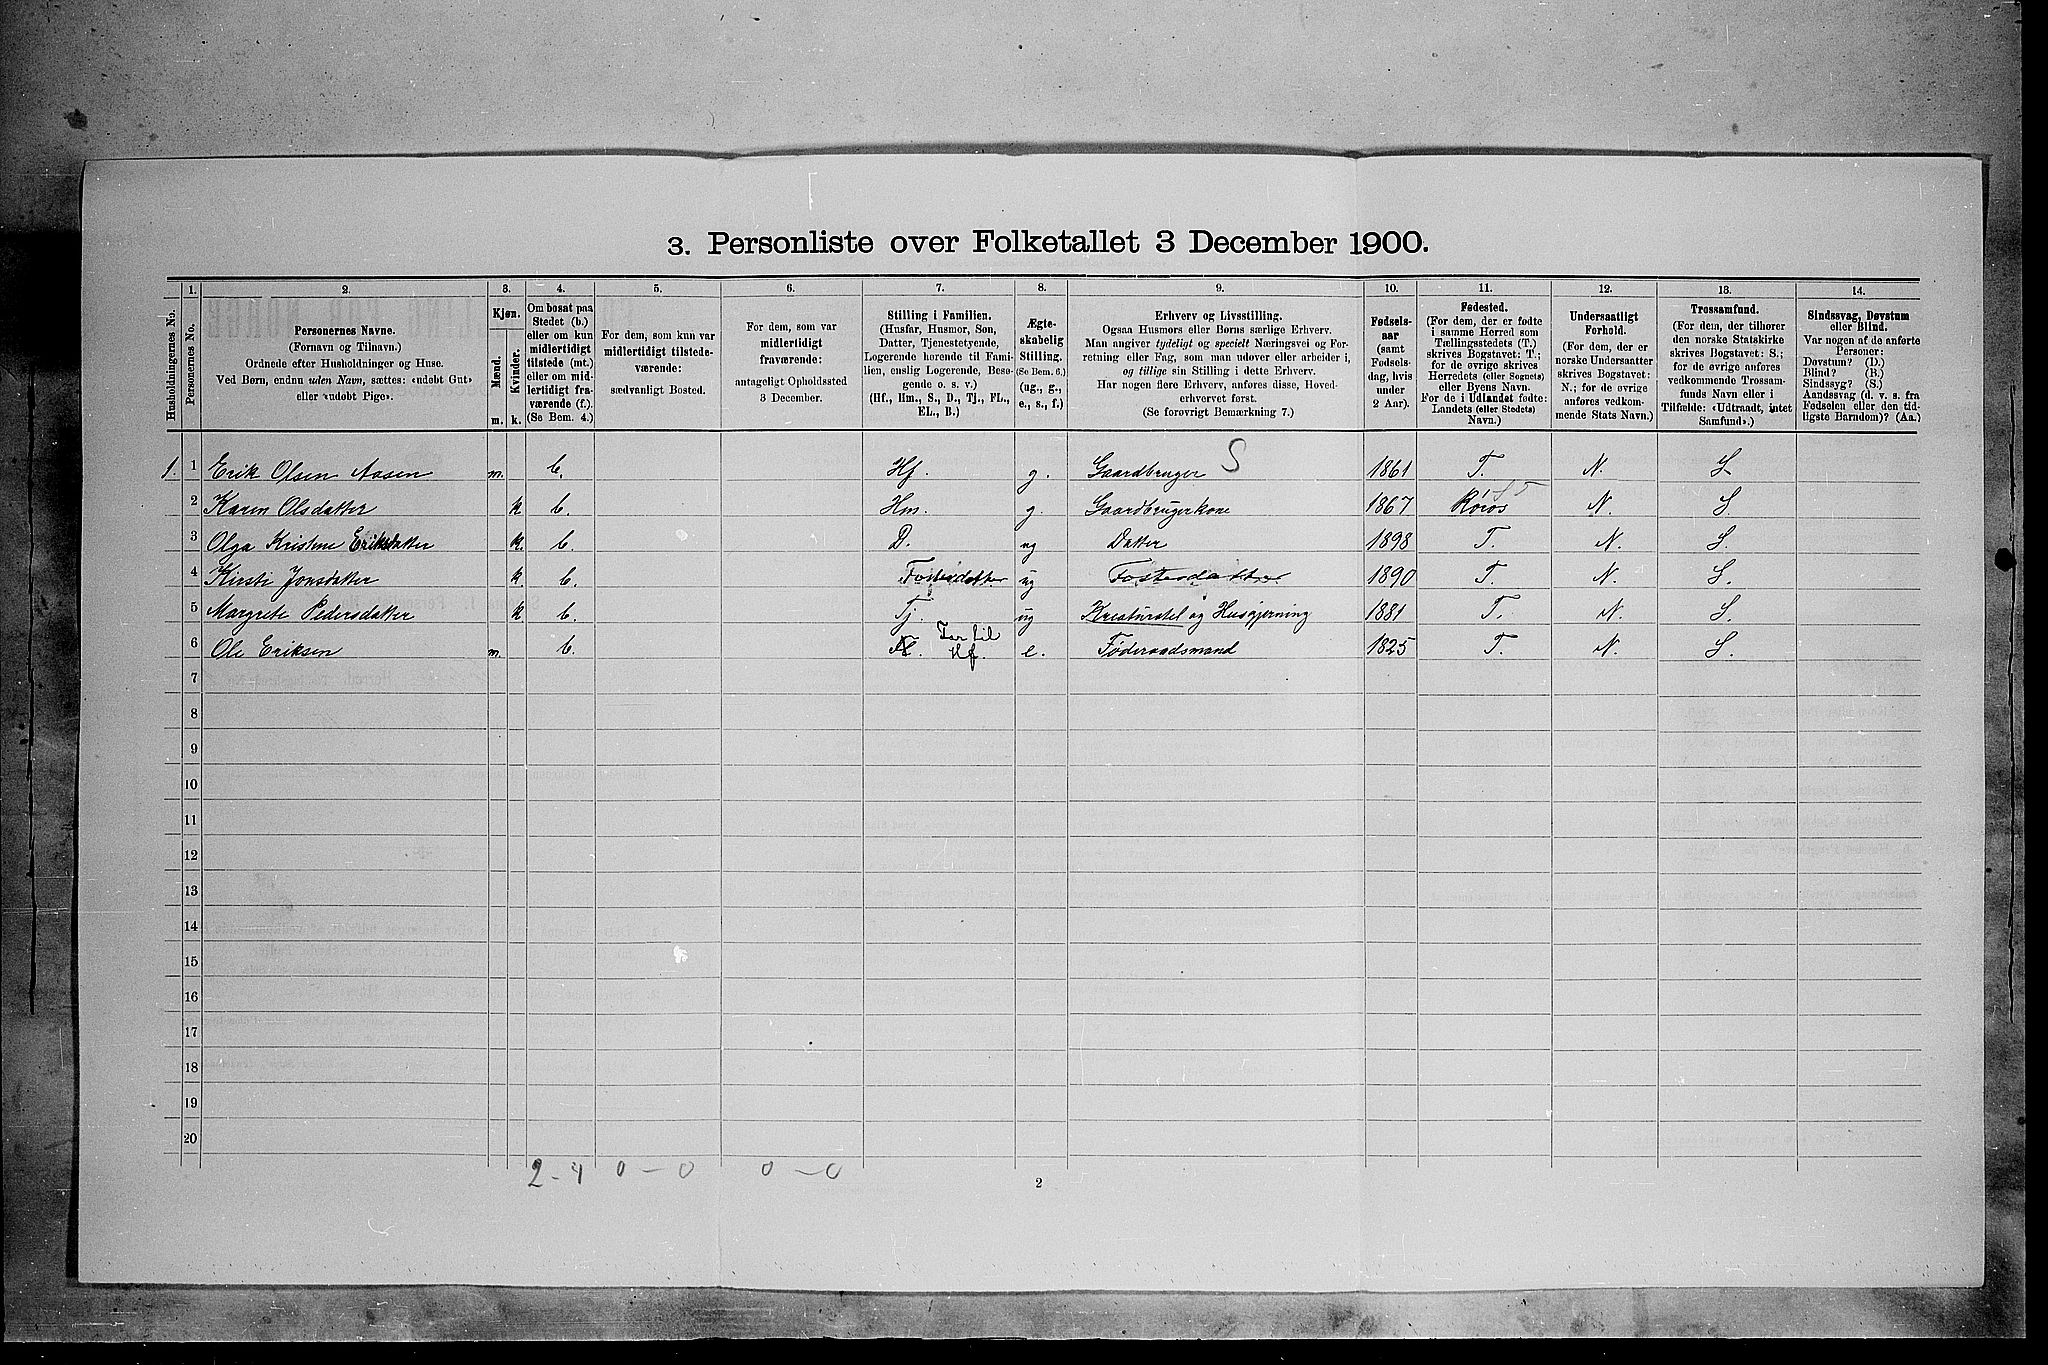 3. Personliste over Folketallet 3 December 1900.
Husholdningernes No.
1.
Personernes No.
2.
Personernes Navne.
(Fornavn og Tilnavn.)
Ordnede efter Husholdninger og Huse.
Ved Børn, endnu uden Navn, sættes: «udøbt Gut»
eller «udøbt Pige».
3.
Kjøn.
Mænd.
Kvinder.
m. k.
4.
Om bosat paa
Stedet (b.)
eller om kun
midlertidigt
tilstede (mt.)
eller om mid-
lertidigt fra-
værende (f.).
(Se Bem. 4.)
5.
For dem, som kun var
midlertidigt tilstede-
værende:
sædvanligt Bosted.
6.
For dem, som var
midlertidigt
fraværende:
antageligt Opholdssted
3 December.
7.
Stilling i Familien.
(Husfar, Husmor, Søn,
Datter, Tjenestetyende,
Logerende hørende til Fami-
lien, enslig Logerende, Besø-
gende o. s. v.)
(Hf., Hm., S., D., Tj., FL.,
EL., B.)
8.
Ægte-
skabelig
Stilling.
(Se Bem. 6.)
(ug., g.,
e., s., f.)
9.
Erhverv og Livsstilling.
Ogsaa Husmors eller Børns særlige Erhverv.
Man angiver tydeligt og specielt Næringsvei og For-
retning eller Fag, som man udøver eller arbeider i,
og tillige sin Stilling i dette Erhverv.
Har nogen flere Erhverv, anføres disse, Hoved-
erhvervet først.
(Se forøvrigt Bemærkning 7.)
10.
Fødsels-
aar
(samt
Fødsels-
dag, hvis
under
2 Aar).
11.
Fødested.
(For dem, der er fødte
i samme Herred som
Tællingsstedets (T.)
skrives Bogstavet: T.;
for de øvrige skrives
Herredets (eller Sognets)
eller Byens Navn.
For de i Udlandet fødte:
Landets (eller Stedets)
Navn.)
12.
Undersaatligt
Forhold.
(For dem, der er
norske Undersaatter
skrives Bogstavet:
N.; for de øvrige
anføres vedkom-
mende Stats Navn.)
13.
Trossamfund.
(For dem, der tilhører
den norske Statskirke
skrives Bogstavet: S.;
for de øvrige anføres
vedkommende Trossam-
funds Navn eller i
Tilfælde: «Udtraadt, intet
Samfund».)
14.
Sindssvag, Døvstum
eller Blind.
Var nogen af de anførte
Personer:
Døvstum? (D.)
Blind? (B.)
Sindssyg? (S.)
Aandssvag (d. v. s. fra
Fødselen eller den tid-
ligste Barndom)? (Aa.)
S
1. 1 Erik Olsen Aasen m. b. Hf. g. Gaardbruger 1861 T. N. S.
2 Karen Olsdatter k b. Hm. g. Gaardbrugerkone 1867 Røros N. S.
3 Olga Kristine Eriksdatter k. b. D. ug Datter 1898 T. N. S.
4 Kirsti Jonsdatter k b. Fosterdatter ug Fosterdatter 1890 T. N. S.
5 Margrete Pedersdatter k b. Tj. ug Kreaturstel og Husgjerning 1881 T. N. S.
6 Ole Eriksen m. b. Far til Hf. e. Føderaadsmand 1825 T. N. S.
7
8
9
10
11
12
13
14
15
16
17
18
19
20
2 - 4 0 - 0 0 - 0
2